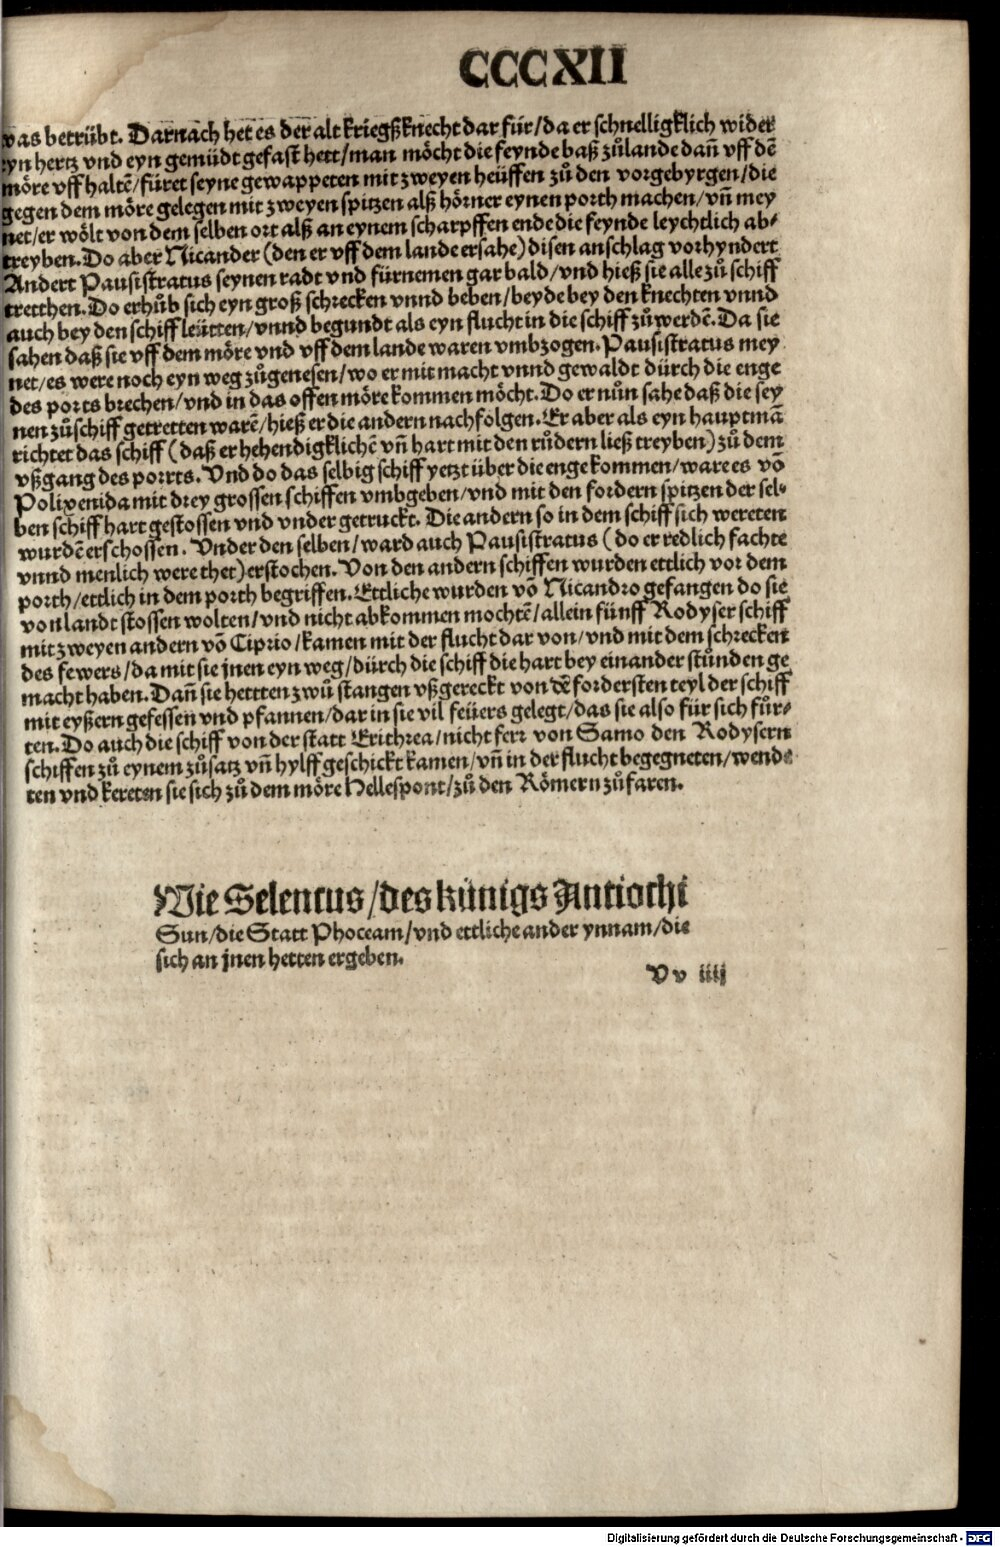 CCCXII
was betrübt. Darnach het es der alt kriegßknecht dar für/da er schnelligklich wider
eyn hertz vnd eyn gemüdt gefast hett/man möcht die feynde baß zůlande dañ vff dē
möre vff haltē/füret seyne gewappeten mit zweyen heüffen zů den vorgebyrgen/die
gegen dem möre gelegen mit zweyen spitzen alß hörner eynen porth machen/vñ mey
net/er wölt von dem selben ort alß an eynem scharpffen ende die feynde leychtlich ab⸗
treyben. Do aber Nicander (den er vff dem lande ersahe) disen anschlag vorhyndert
Andert Pausistratus seynen radt vnd fürnemen gar bald/vnd hieß sie alle zů schiff
tretthen. Do erhůb sich eyn groß schrecken vnnd beben/beyde bey den knechten vnnd
auch bey den schiff leütten/vnnd begundt als eyn flucht in die schiff zů werdē. Da sie
sahen daß sie vff dem möre vnd vff dem lande waren vmbzogen. Pausistratus mey
net/es were noch eyn weg zůgenesen/wo er mit macht vnnd gewaldt dürch die enge
des ports brechen/vnd in das offen möre kommen möcht. Do er nůn sahe daß die sey
nen zůschiff getretten warē/hieß er die andern nachfolgen. Er aber als eyn hauptmā
richtet das schiff (daß er hehendigklichē vñ hart mit den růdern ließ treyben) zů dem
vßgang des porrts. Vnd do das selbig schiff yetzt über die enge kommen/ware es vō
Polixenida mit drey grossen schiffen vmbgeben/vnd mit den fordern spitzen der sel⸗
ben schiff hart gestossen vnd vnder getruckt. Die andern so in dem schiff sich wereten
wurdē erschossen. Vnder den selben/ward auch Pausistratus (do er redlich fachte
vnnd menlich were thet) erstochen. Von den andern schiffen wurden ettlich vor dem
porth/ettlich in dem porth begriffen. Ettliche wurden vō Nicandro gefangen do sie
von landt stossen wolten/vnd nicht abkommen mochtē/allein fünff Rodyser schiff
mit zweyen andern vō Ciprio/kamen mit der flucht dar von/vnd mit dem schrecken
des fewers/da mit sie jnen eyn weg/dürch die schiff die hart bey einander stůnden ge
macht haben. Dañ sie hettten zwů stangen vßgereckt von dē fordersten teyl der schiff
mit eyßern gefessen vnd pfannen/dar in sie vil feüers gelegt/das sie also für sich fůr⸗
ten. Do auch die schiff von der statt Erithrea/nicht ferr von Samo den Rodysern
schiffen zů eynem zůsatz vñ hylff geschickt kamen/vñ in der flucht begegneten/wend⸗
ten vnd kereten sie sich zů dem möre Hellespont/zů den Römern zůfaren.
Wie Selencus/des künigs Antiochi
Sun/die Statt Phoceam/vnd ettliche ander ynnam/die
sich an jnen hetten ergeben.
Vv iiij
Digitalisierung gefördert durch die Deutsche Forschungsgemeinschaft - DFG